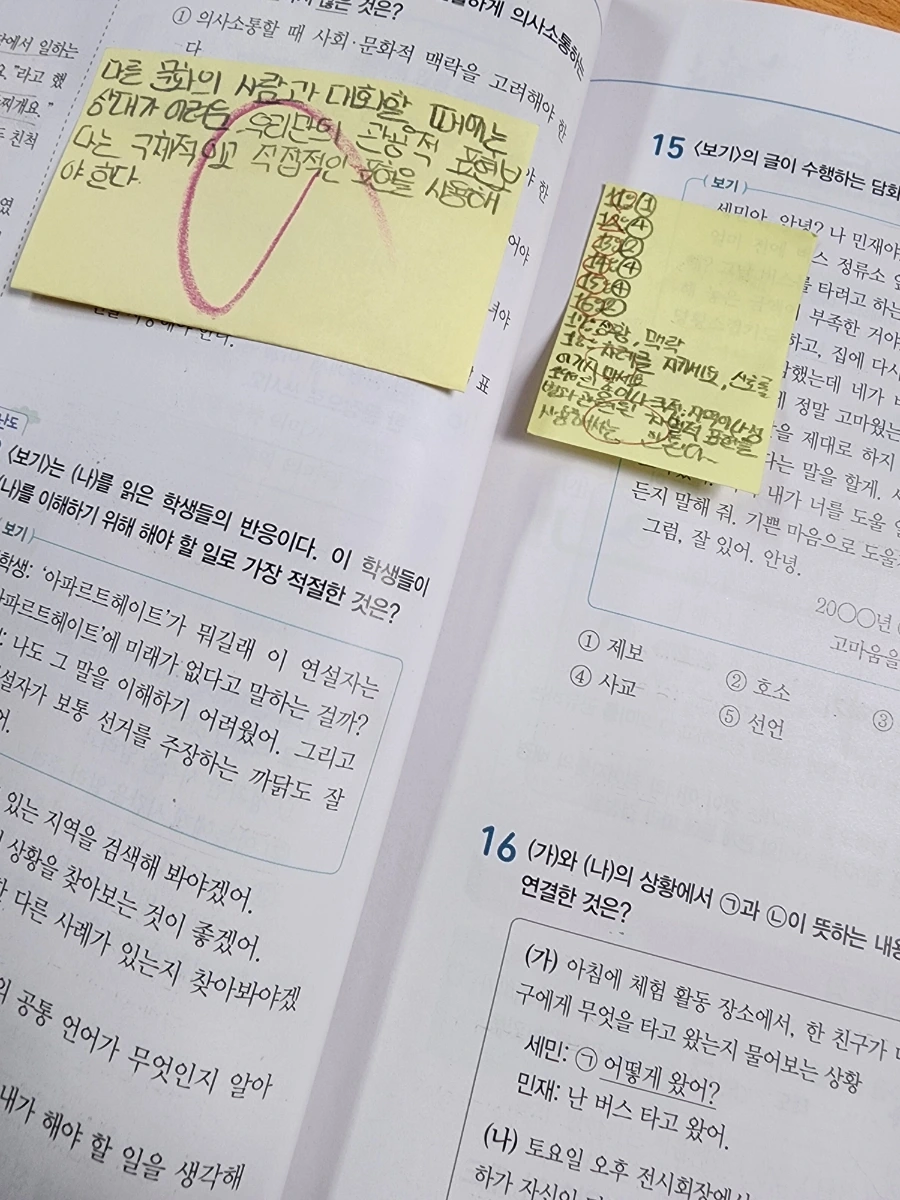 하게 의사소통하는
않은 것은?
① 의사소통할 때 사회·문화적 맥락을 고려해야 한
다
에서 일하는
"라고 했
찌개요."
친척
였
다른 문화의 사람과 대화할 때에는
상대가 이러는 우리만의 관용적 표현보
다는 구체적이고 직접적인 표현을 사용해
야 한다.
한
어야
표
〈보기〉는 (나)를 읽은 학생들의 반응이다. 이 학생들이
(나)를 이해하기 위해 해야 할 일로 가장 적절한 것은?
보기
학생: ‘아파르트헤이트’가 뭐길래 이 연설자는
아파르트헤이트’에 미래가 없다고 말하는 걸까?
: 나도 그 말을 이해하기 어려웠어. 그리고
설자가 보통 선거를 주장하는 까닭도 잘
어.
있는 지역을 검색해 봐야겠어.
상황을 찾아보는 것이 좋겠어.
다른 사례가 있는지 찾아봐야겠
의 공통 언어가 무엇인지 알아
내가 해야 할 일을 생각해
15 〈보기〉의 글이 수행하는 담화
보기
세민아, 안녕? 나 민재야
스 정류소 앞
를 타려고 하는
부족한 거야
하고, 집에 다시
했는데 네가
정말 고마웠는
을 제대로 하지
다는 말을 할게.
내가 너를 도울 일
든지 말해 줘. 기쁜 마음으로 도울
그럼, 잘 있어. 안녕.
20○○년
고마움을
11: ①
12: ④
13: ②
14: ④
15: ④
16: ②
17: 상황, 맥락
18: 차례를 지키세요, 신호를
어기지 마세요
표현을
사용해서는 된다
① 제보
② 호소
③
④ 사교
⑤ 선언
16 (가)와 (나)의 상황에서 ㉠과 ㉡이 뜻하는 내용
연결한 것은?
(가) 아침에 체험 활동 장소에서, 한 친구가
구에게 무엇을 타고 왔는지 물어보는 상황
세민: ㉠ 어떻게 왔어?
민재: 난 버스 타고 왔어.
(나) 토요일 오후 전시회장에서
하가 자신이